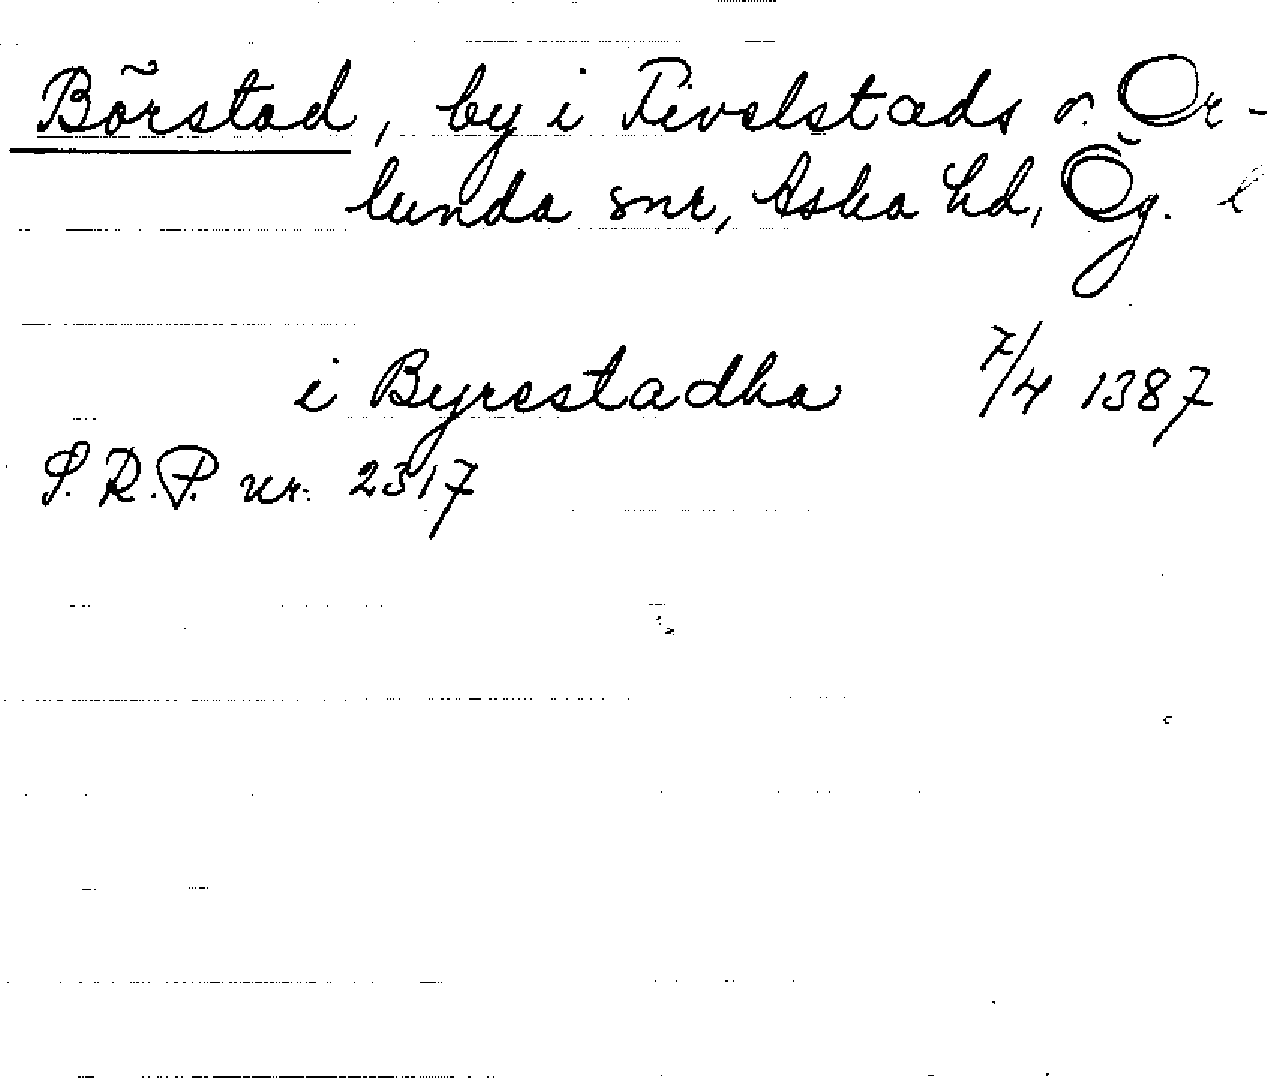 Börstad, by i Fivelstads o. Or-
lunda snr, Aska hd, Ög. l
i Byrestadha 7/4 1387
S.R.P. nr. 2317